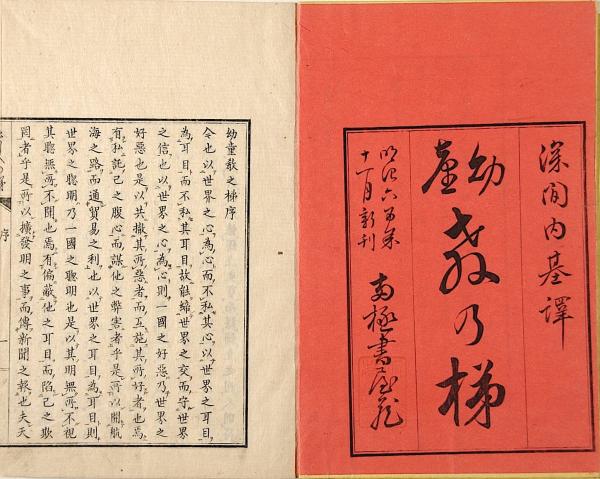 深間内基譯
幼童教乃梯
明治六癸酉
十一月新刊
南極書屋蔵
幼童教之梯序
今也以世界之心為心而不私其心以世界之耳目
為耳目而不私其耳目故能締世界之交而守世界
之信也以世界之心為心則一國之好惡乃世界之
好惡也是以共撤其所惡者而互施其所好者也焉
有私託己之腹心而謀他之弊害者乎是所以開航
海之路而通貿易之利也以世界之耳目為耳目則
世界之聰明乃一國之聰明也是以其明無所不視
其聰無所不聞也焉有偏蔽他之耳目而陷己之欺
罔者乎是所以擴發明之事而傳新聞之報也夫天
序